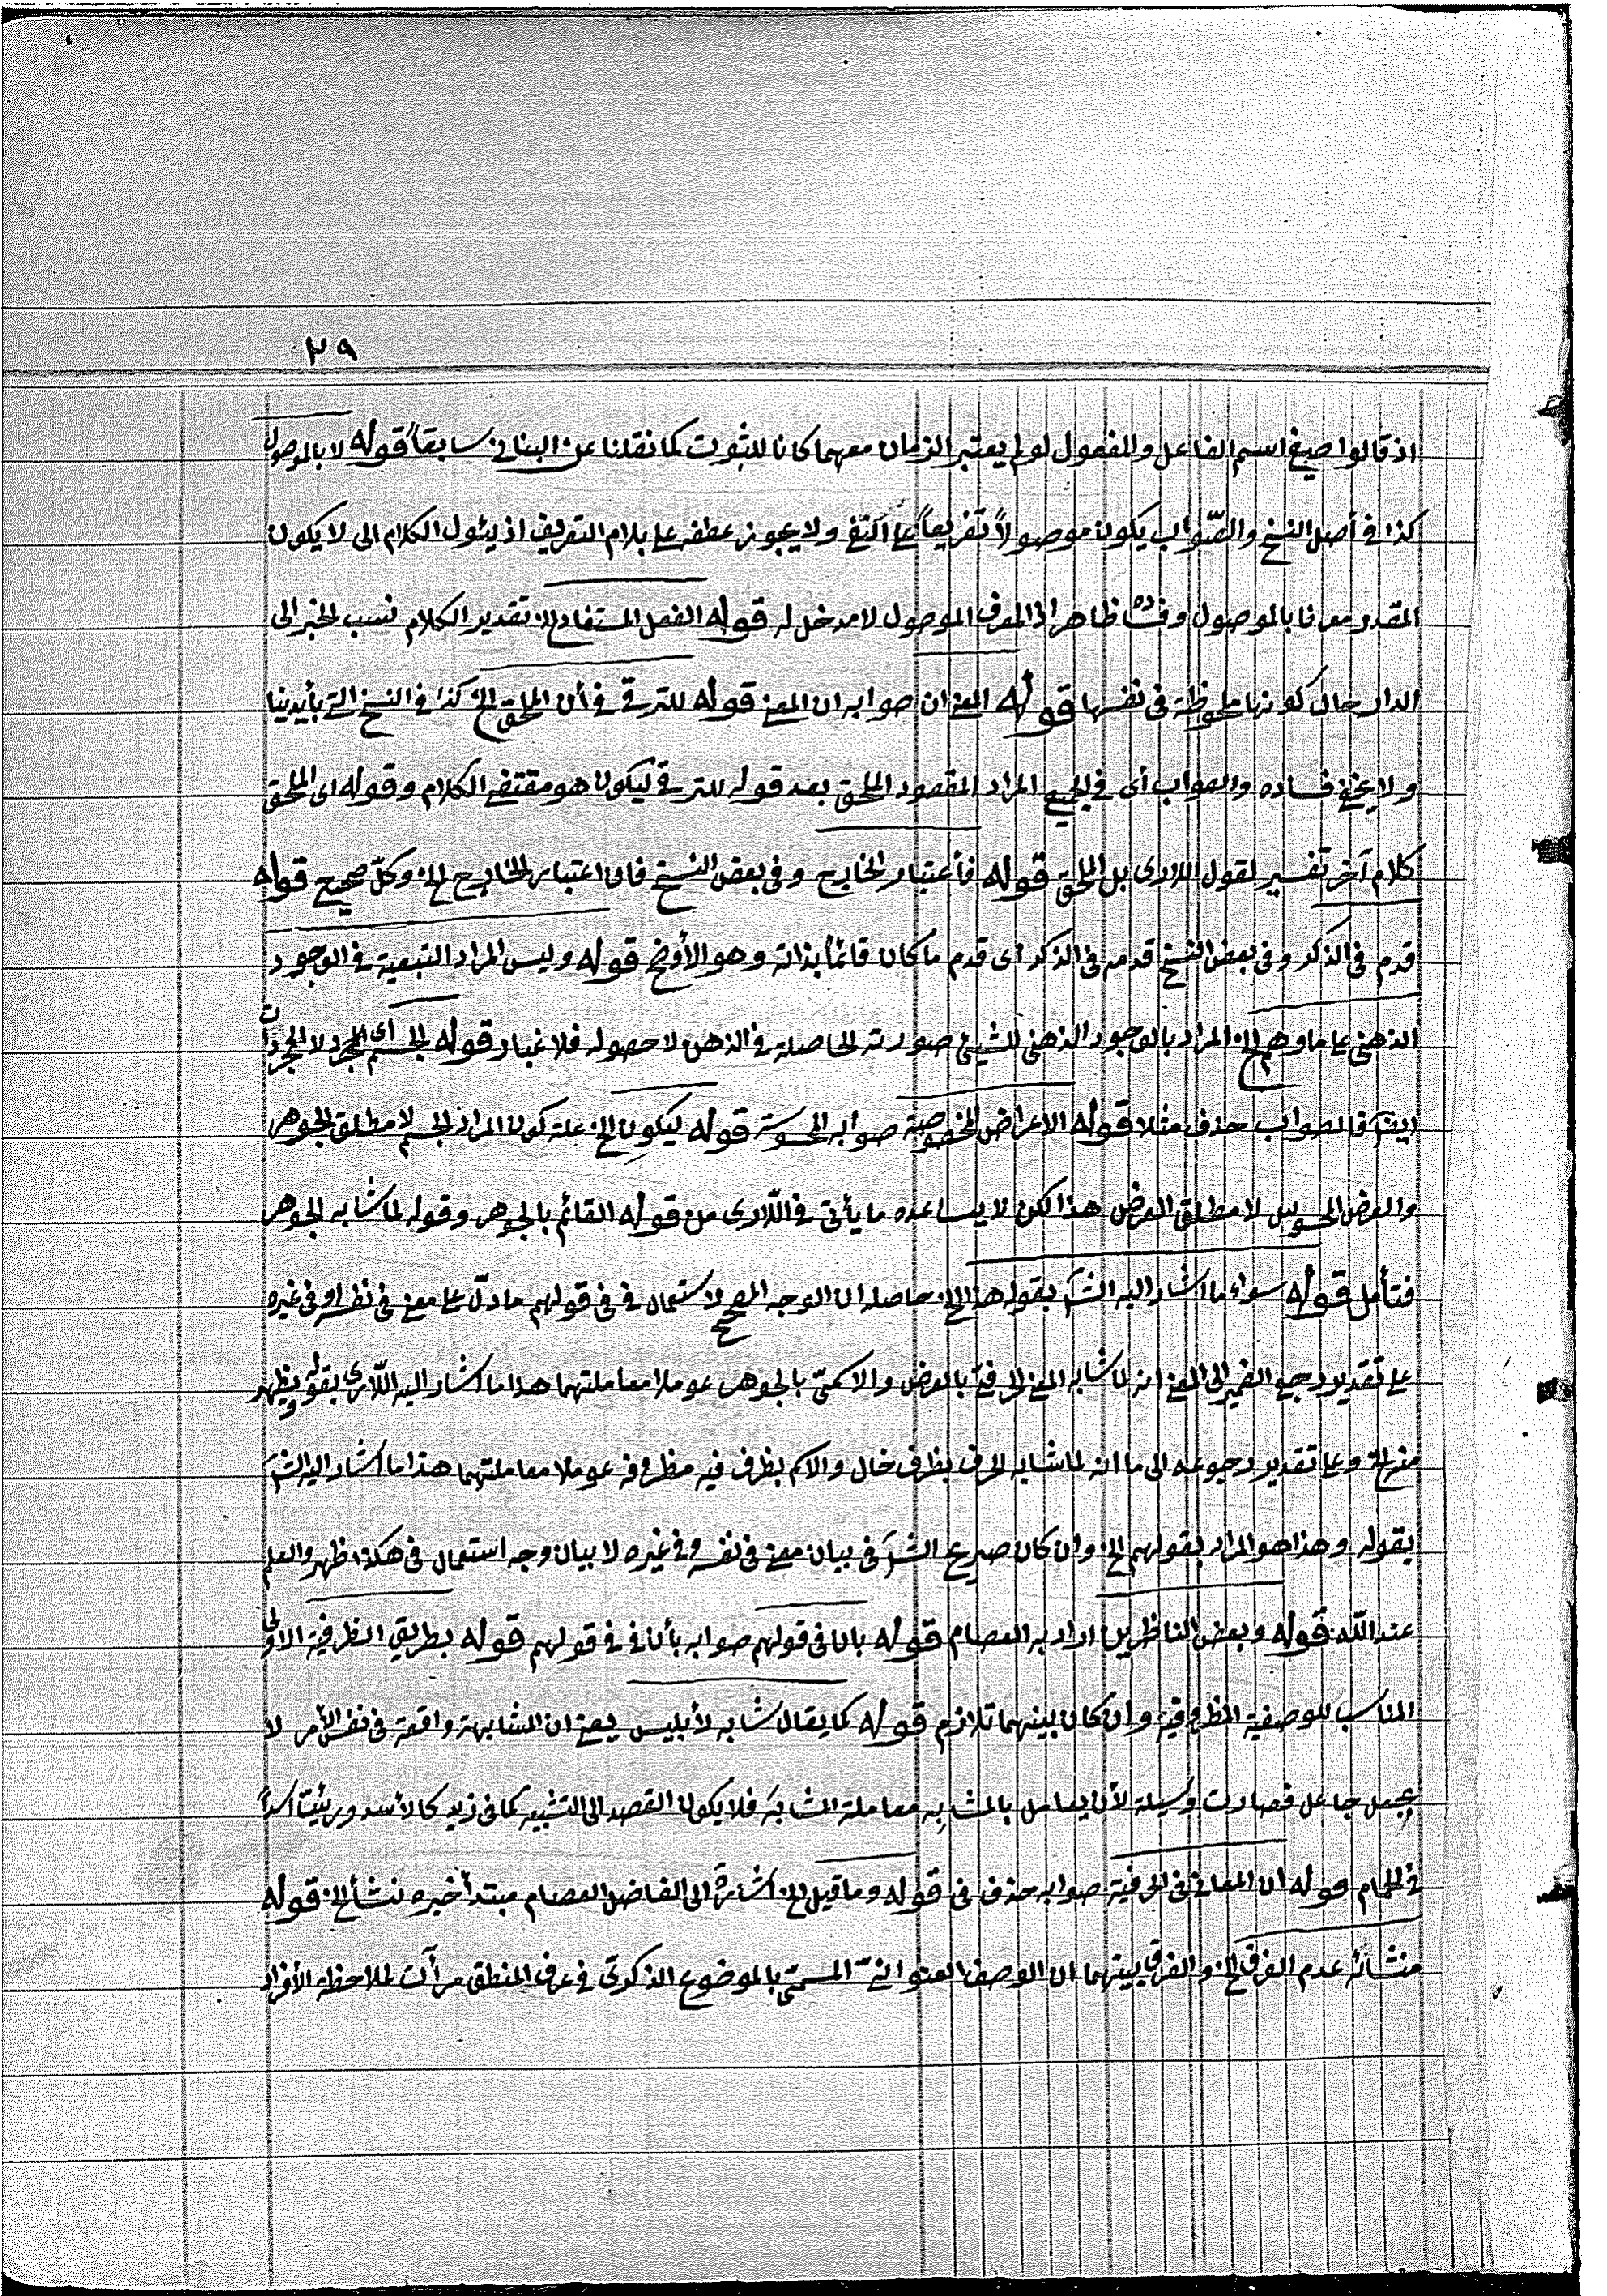 ٢٩
اذ قالوا صيغ اسم الفاعل والمفعول لو لم يعتبر الزمان معهما كانا للثبوت كما نقلنا عن البنانى سابقاً قوله لا بالموصول
كذا فى أصل النسخ والصّواب يكون موصولاً تفريعاً ع اكتفى ولا يجوز عطفه على بلام التعريف اذ يئول الكلام الى لا يكون
المقدر معرفا بالموصول وفساده ظاهر اذ المعرف الموصول لا مدخل له قوله الفعل المستفاد الخ تقدير الكلام نسب الخبر الى
الدار حال كونها ملحوظة فى نفسها قوله المعنى ان صوابه ان المعنى قوله للترقى فى أن الملحق الخ كذا فى النسخ التى بأيدينا
ولا يخفى فساده والصواب أى فى الجميع المراد المقصود الملحق بعد قوله للترقى ليكون هو مقتضى الكلام وقوله اى الملحق
كلام آخر تفسير لقول اللارى بل الملحق قوله فأعتبار الخارج وفى بعض النسخ فان اعتبار الخارج الخ وكلّ صحيح قوله
قدم فى الذكر وفى بعض النسخ قدمه فى الذكر أى قدم ما كان قائماً بذاته وهو الأوضح قوله وليس المراد التبعية فى الوجود
الذهنى على ما وهم الخ المراد بالوجود الذهنى للشيئ صورته الحاصلة فى الذهن لا حصوله فلا غبار قوله الجسم أى المجرد لا المجردات
ايضا فالصواب حذف مثلا قوله الاعراض المخصوصة صوابه المحسوسة قوله ليكون الخ علة كون المراد الجسم لا مطلق الجوهر
والعرض المحسوس لا مطلق العرض هذا لكن لا يساعده ما يأتى فى اللّارى من قوله القائم بالجوهر وقوله لما شابه الجوهر
فتأمل قوله سواء ما اشار اليه الشـ بقوله هذا الخ حاصله ان الوجه المصحح لاستعمال فى فى قولهم ما دلّ على معنى فى نفسه او فى غيره
على تقدير رجع الضمير الى المعنى انه لما شابه المعنى الحرفىّ بالعرض والاسمىّ بالجوهر عوملا معاملتهما هذا ما اشار اليه اللّارى بقوله ويظهر
منه الخ وعلى تقدير رجوعه الى ما انه لما شابه الحرف بظرف خال والاسم بظرف فيه مظروفه عوملا معاملتهما هذا ما اشار اليه الشـ
بقوله وهذا هو المراد بقولهم الخ وان كان صريح الشـ فى بيان معنى فى نفسه وفى غيره لا بيان وجه استعمال فى هكذا ظهر والعلم
عند الله قوله وبعض الناظرين اراد به العصام قوله بان فى قولهم صوابه بأن فى فى قولهم قوله بطريق الظرفية الاولى
المناسب للوصفية المظروفية وان كان بينهما تلازم قوله كما يقال شابه لأبليس يعنى ان المشابهة واقعة فى نفس الأمر لا
بجعل جاعل فصارت وسيلة لأن يعامل بالمشابِه معاملة المشابَه فلا يكون القصد الى التشبيه كما فى زيد كالأسد ورئيت اسداً
فى الحمام قوله ان المعانى فى الحرفية صوابه حذف فى قوله وما قيل الخ اشارة الى الفاضل العصام مبتدأ خبره نشأ الخ قوله
منشائه عدم الفرق الخ والفرق بينهما ان الوصف العنوانىّ المسمّى بالموضوع الذكرىّ فى عرف المنطق مرآت لملاحظة الأفراد